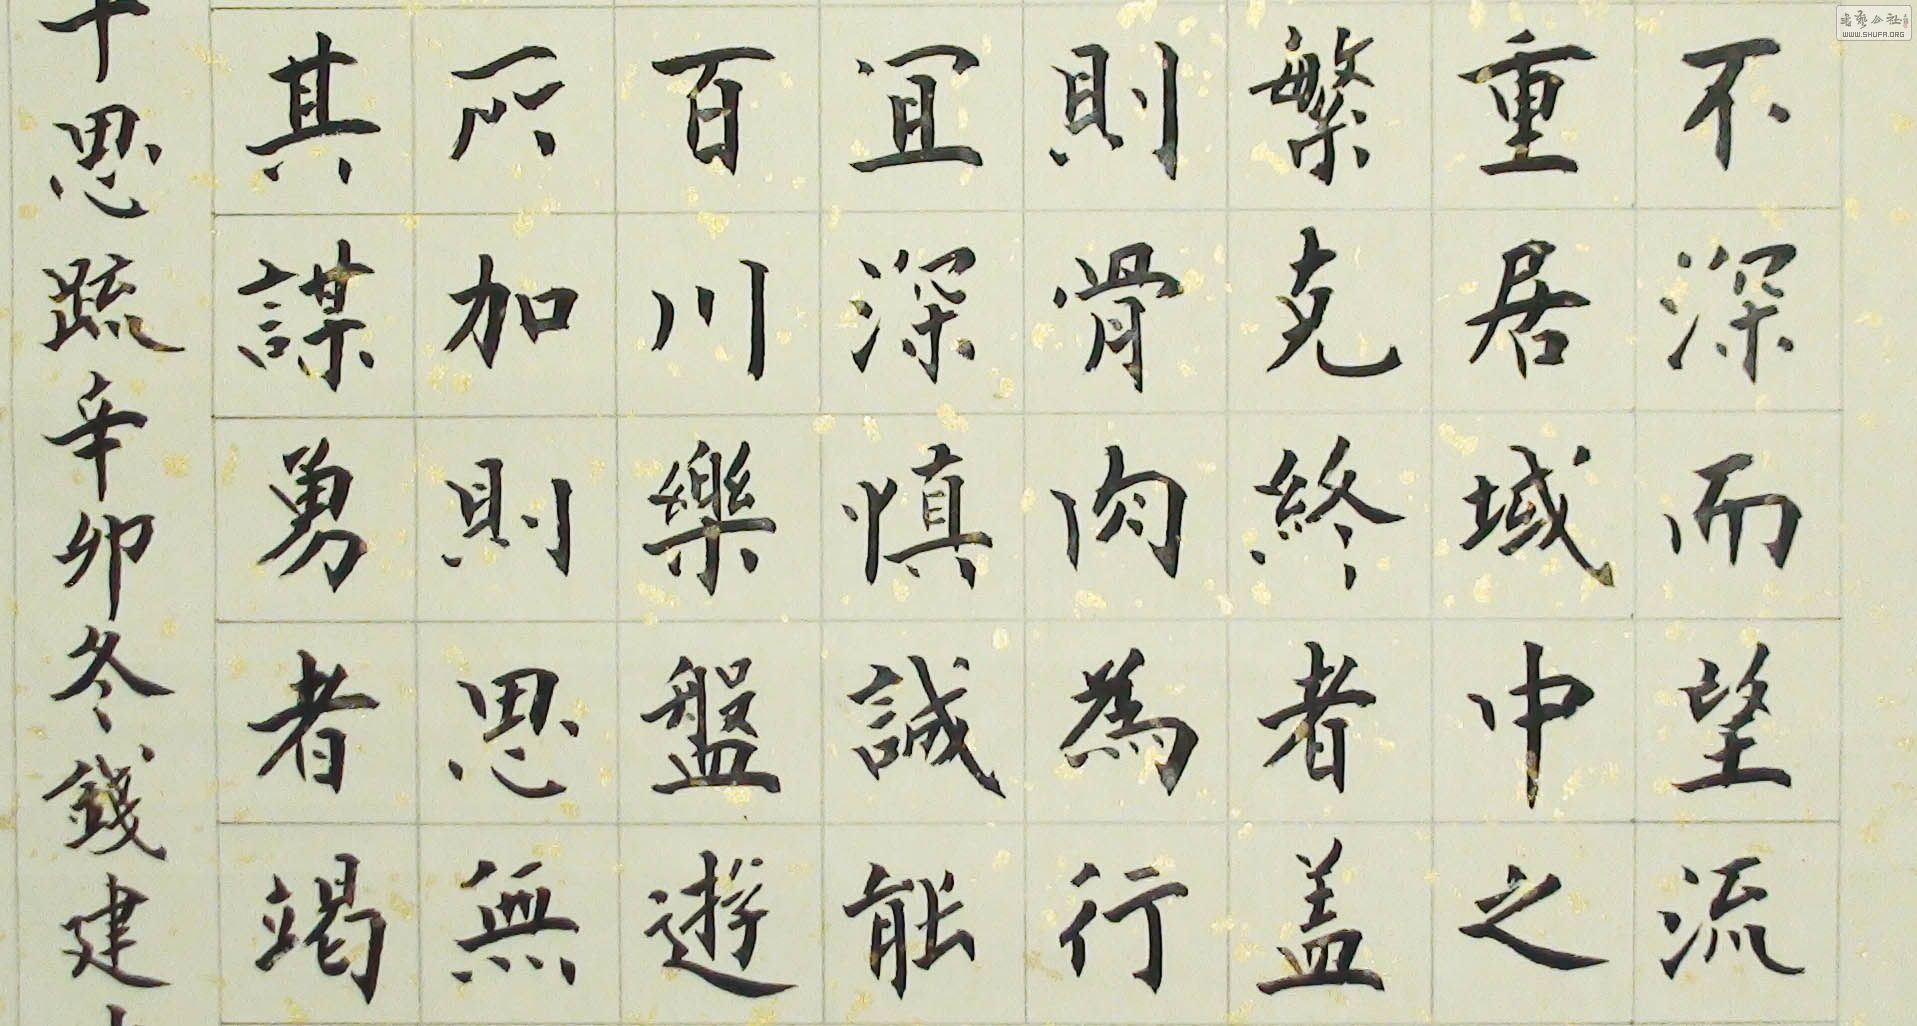 不深而望流
重居域中之
繁克終者盖
則骨肉為行
宜深慎誠能
百川樂盤遊
所加則思無
其謀勇者竭
十思疏辛卯冬錢建
書藝公社
WWW.SHUFA.ORG